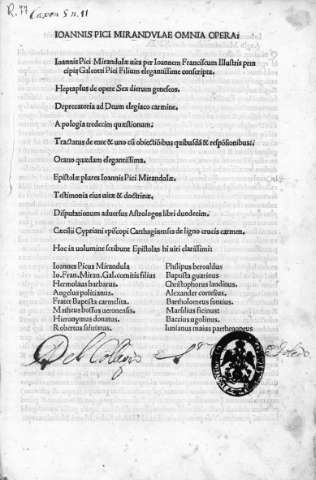 R. 77 Caxon S n. 11
IOANNIS PICI MIRANDVLAE OMNIA OPERA:
Ioannis Pici Mirandulæ uita per Ioannem Franciscum Illustris prin
cipis Galeotti Pici Filium elegantissime conscripta.
Heptaplus de opere Sex dierum geneseos.
Deprecatoria ad Deum elegiaco carmine.
Apologia tredecim quæstionum.
Tractatus de ente & uno cū obiectiōibus quibusdā & respōsionibus.
Oratio quædam elegantissima.
Epistolæ plures Ioannis Pici Mirandulæ.
Testimonia eius uitæ & doctrinæ.
Disputationum aduersus Astrologos libri duodecim.
Cæcilii Cypriani episcopi Carthaginensis de ligno crucis carmen.
Hoc in uolumine scribunt Epistolas hi uiri clarissimi:
Ioannes Picus Mirandula
Io. Fran. Miran. Gal. comitis filius
Hermolaus barbarus.
Angelus politianus.
Frater Baptista carmelita.
Matheus bossus ueronensis.
Hieronymus donatus.
Robertus saluiatus.
Philippus beroaldus
Baptista guarinus
Christophorus landinus.
Alexander cortesius.
Bartholomeus fontius.
Marsilius ficinus:
Baccius ugolinus.
Iunianus maius partheneopeus
Del Collegio